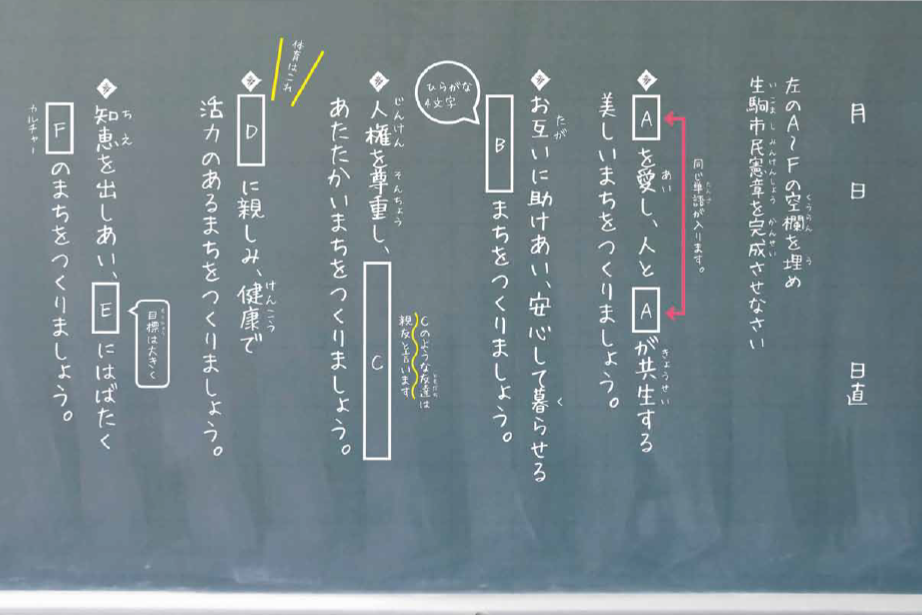 月　日　日直
左のA〜Fの空欄を埋め
生駒市民憲章を完成させなさい
同じ単語が入ります。
Aを愛し、人とAが共生する
美しいまちをつくりましょう。
お互いに助けあい、安心して暮らせる
Bまちをつくりましょう。
ひらがな
4文字
Cのような友達は
親友と言います
人権を尊重し、C
あたたかいまちをつくりましょう。
体育はこれ
Dに親しみ、健康で
活力のあるまちをつくりましょう。
知恵を出しあい、Eにはばたく
目標は大きく
Fのまちをつくりましょう。
カルチャー